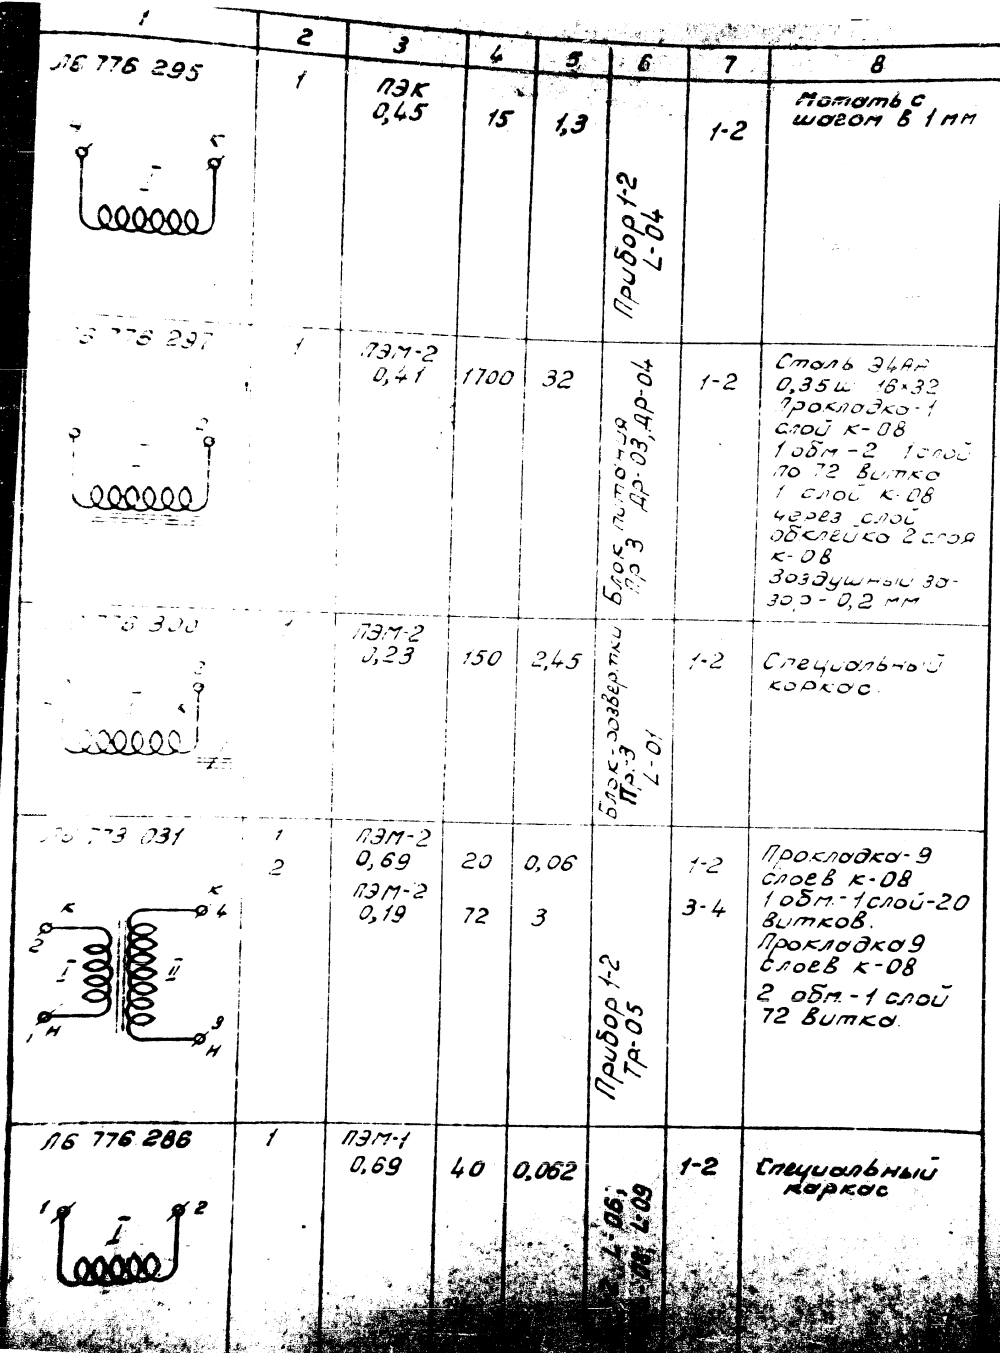 1 2 3 4 5 6 7 8
Л6 776 295 1 ПЭК 0,45 15 1,3 1-2
Прибор 1-2
L-04
Мотать с
шагом в 1 мм
I
776 297 1 ПЭМ-2 0,41 1700 32 1-2
Блок питания
Пр 3 Др-03, Др-04
Сталь
0,35 16×32
Прокладка-1
слой К-08
1 обм-2 1 слой
по 72 витка
1 слой К-08
через слой
обклейка 2 слоя
К-08
Воздушный за-
зор - 0,2 мм
300 ПЭМ-2 0,23 150 2,45 1-2
Блок-развертки
Пр.3
L-01
Специальный
каркас.
031 1 ПЭМ-2 0,69 20 0,06 1-2
2 ПЭМ-2 0,19 72 3 3-4
К К 4
2
I II
1 Н
Н
Прибор 1-2
Тр-05
Прокладка-9
слоев К-08
1 обм.-1 слой-20
витков.
Прокладка 9
слоев К-08
2 обм.-1 слой
72 витка.
Л6 776 286 1 ПЭМ-1 0,69 40 0,062 1-2
1 2
I
L-06,
L-09
Специальный
каркас